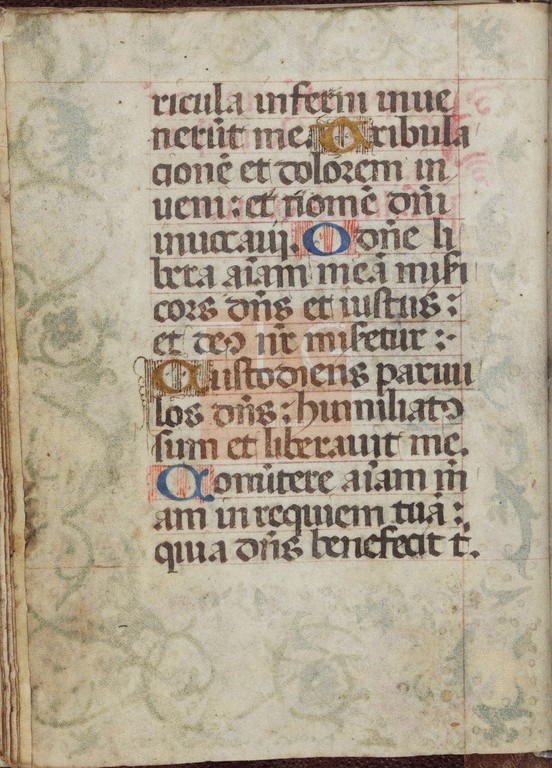 ricula inferni inue
nerūt me. Tribula
cionē et dolorem in
ueni : et nomē dn̄i
inuocaui. O dn̄e li
bera aīam meā misei
cors dn̄s et iustus :
et deꝰ nr̄ misetur :
Custodiens paruu
los dn̄s : humiliatꝰ
sum et liberauit me.
Conūtere aīam m̄
am in requiem tuā :
quia dn̄s benefecit t̄.